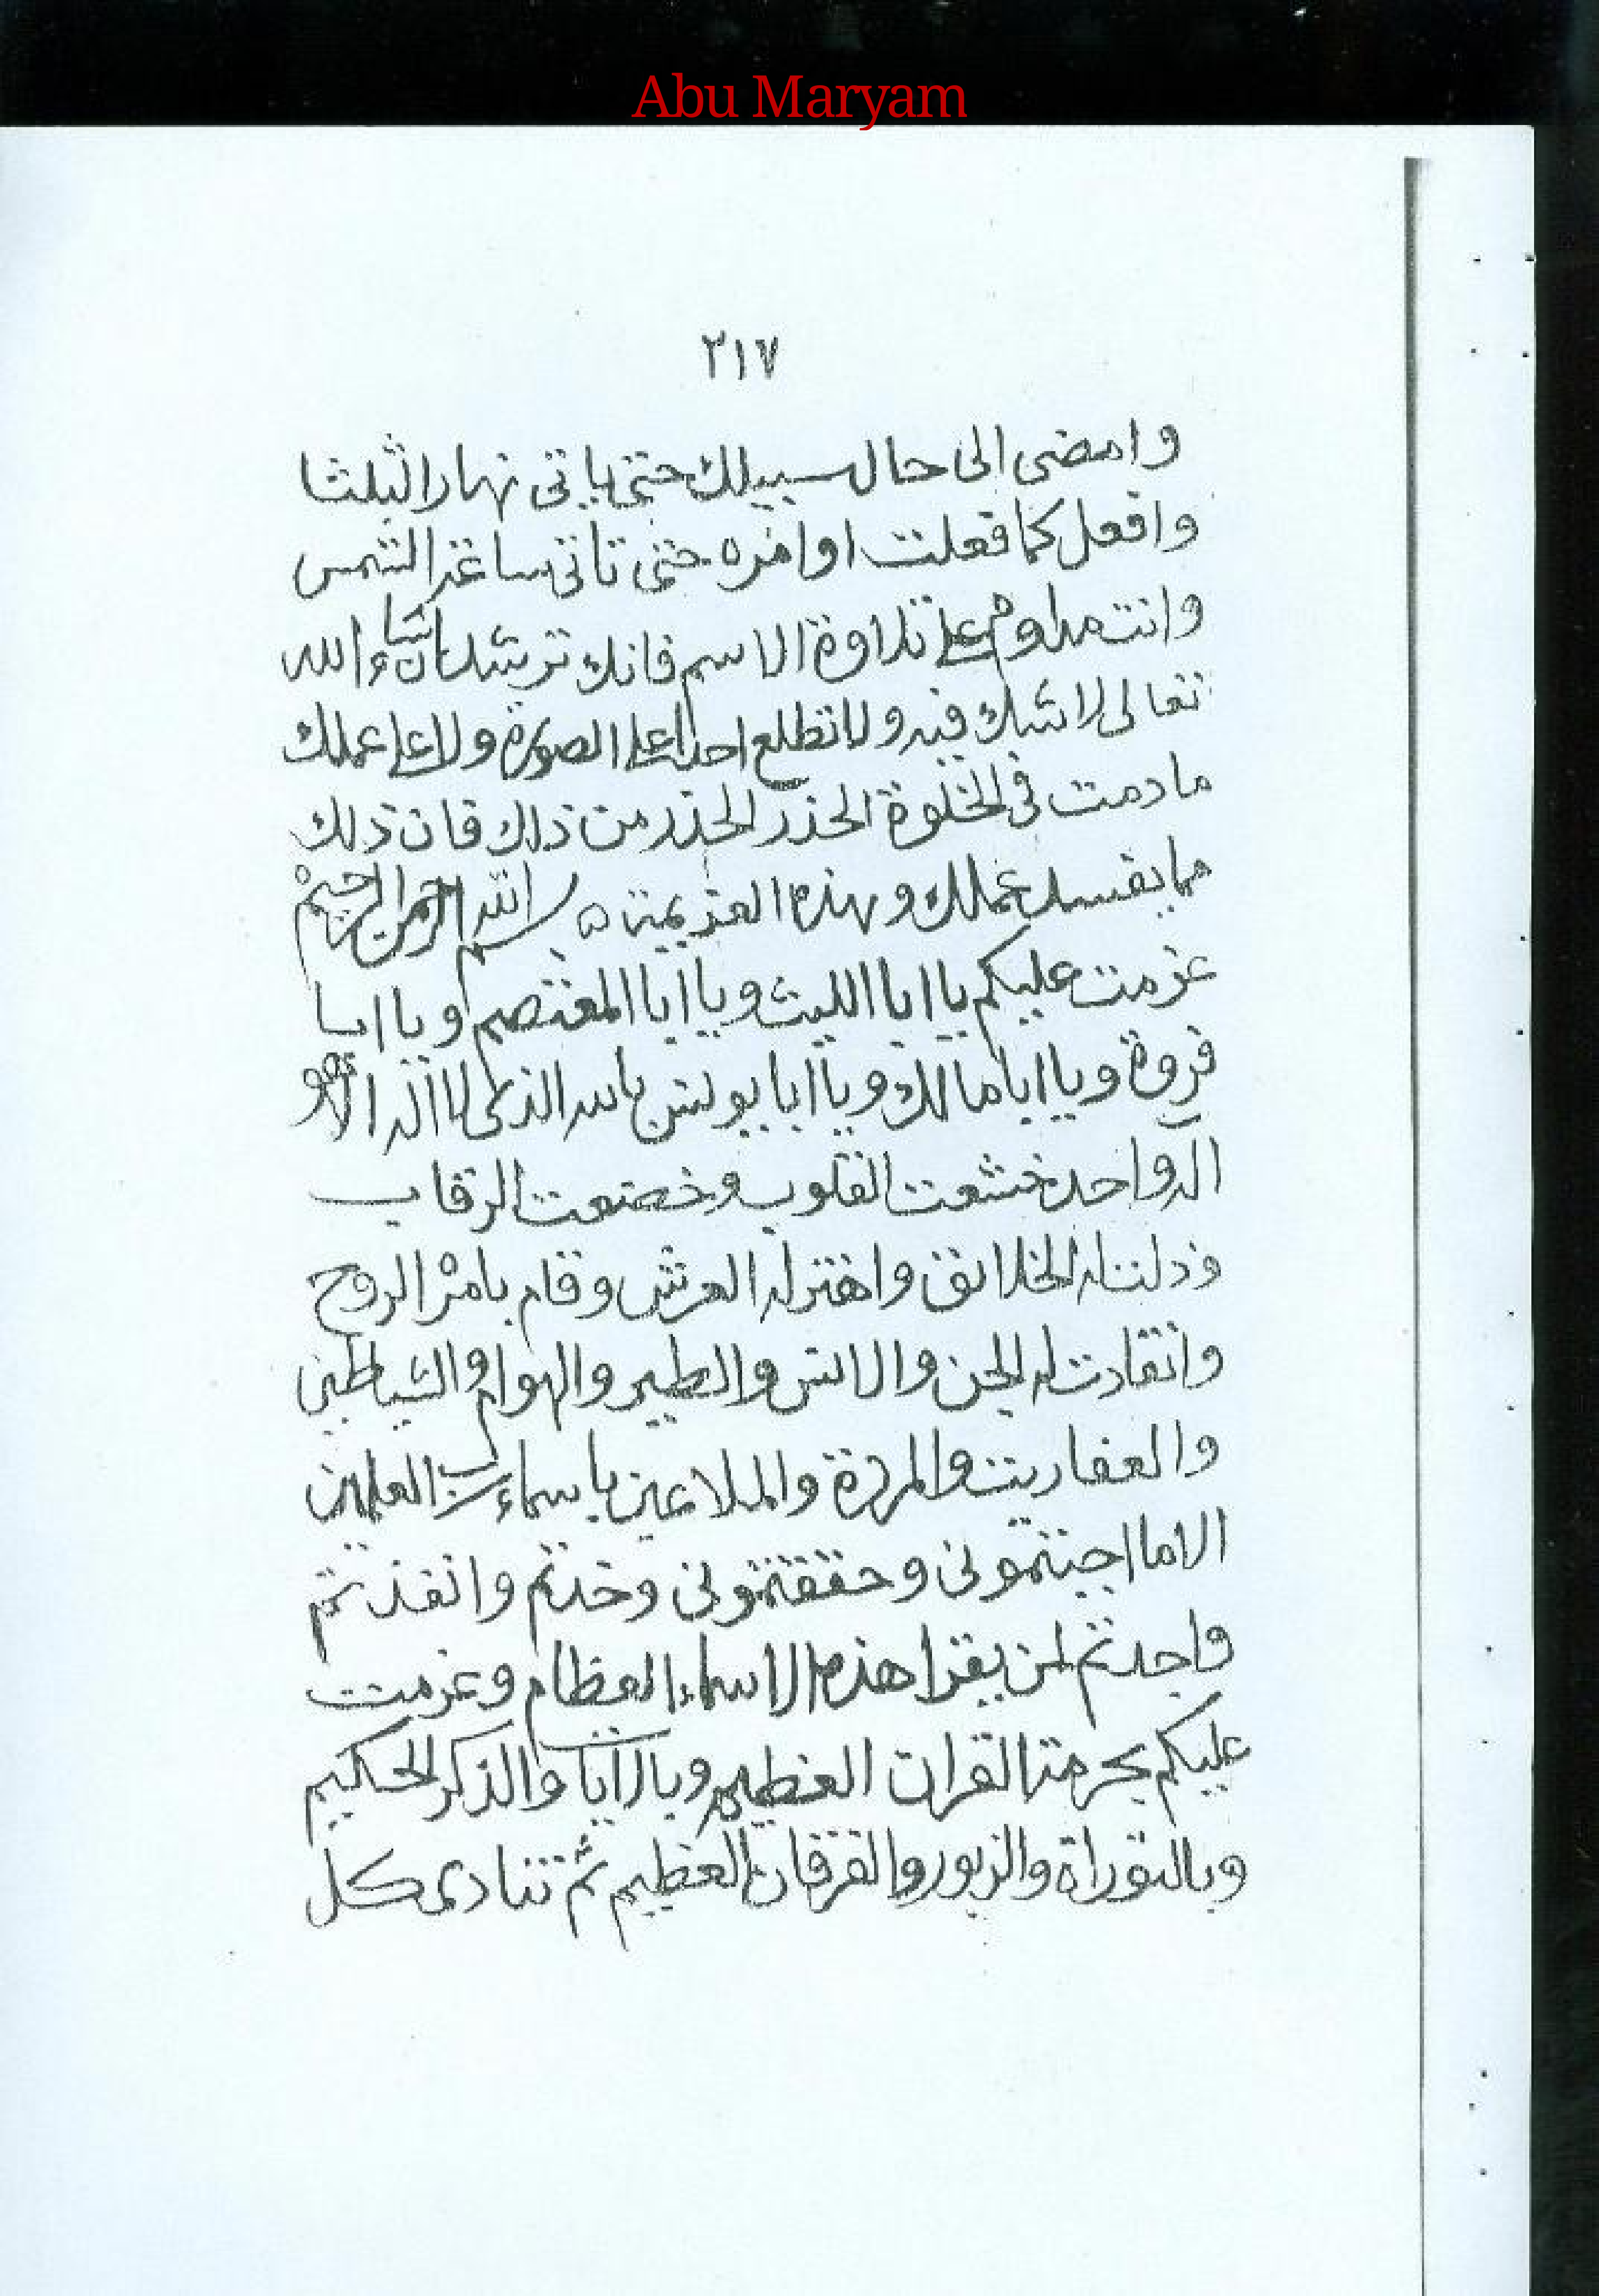 Abu Maryam
٢١٧
وامضى الى حال سبيلك حتى ياتى نهار الثلثا
وافعل كما فعلت اوامره حتى تاتى ساعة الشمس
وانت مداوم على تلاوة الاسم فانك ترشد ان شاء الله
تعالى لا شك فيه ولا تطلع احدا على الصورة ولا على عملك
ما دمت فى الخلوة الحذر الحذر من ذلك فان ذلك
مما يفسد عملك وهذه العزيمة ه بسم الله الرحمن الرحيم
عزمت عليكم يا ابا الليث ويا ابا المعتصم ويا ابا
فروة ويا ابا مالك ويا ابا يونس بالله الذى لا اله الا هو
اله واحد خشعت القلوب وخضعت الرقاب
وذلت له الخلائق واهتز له العرش وقام بامره الروح
وانقادت له الجن والانس والطير والهوام والشياطين
والعفاريت والمردة والملاعين باسماء رب العلمين
الا ما اجبتمونى وحققتمونى وخدتم وانفذتم
واجدتم لمن يقرا هذه الاسماء العظام وعزمت
عليكم بحرمة القران العظيم وبالايات والذكر الحكيم
وبالتوراة والزبور والفرقان العظيم ثم تنادى كل